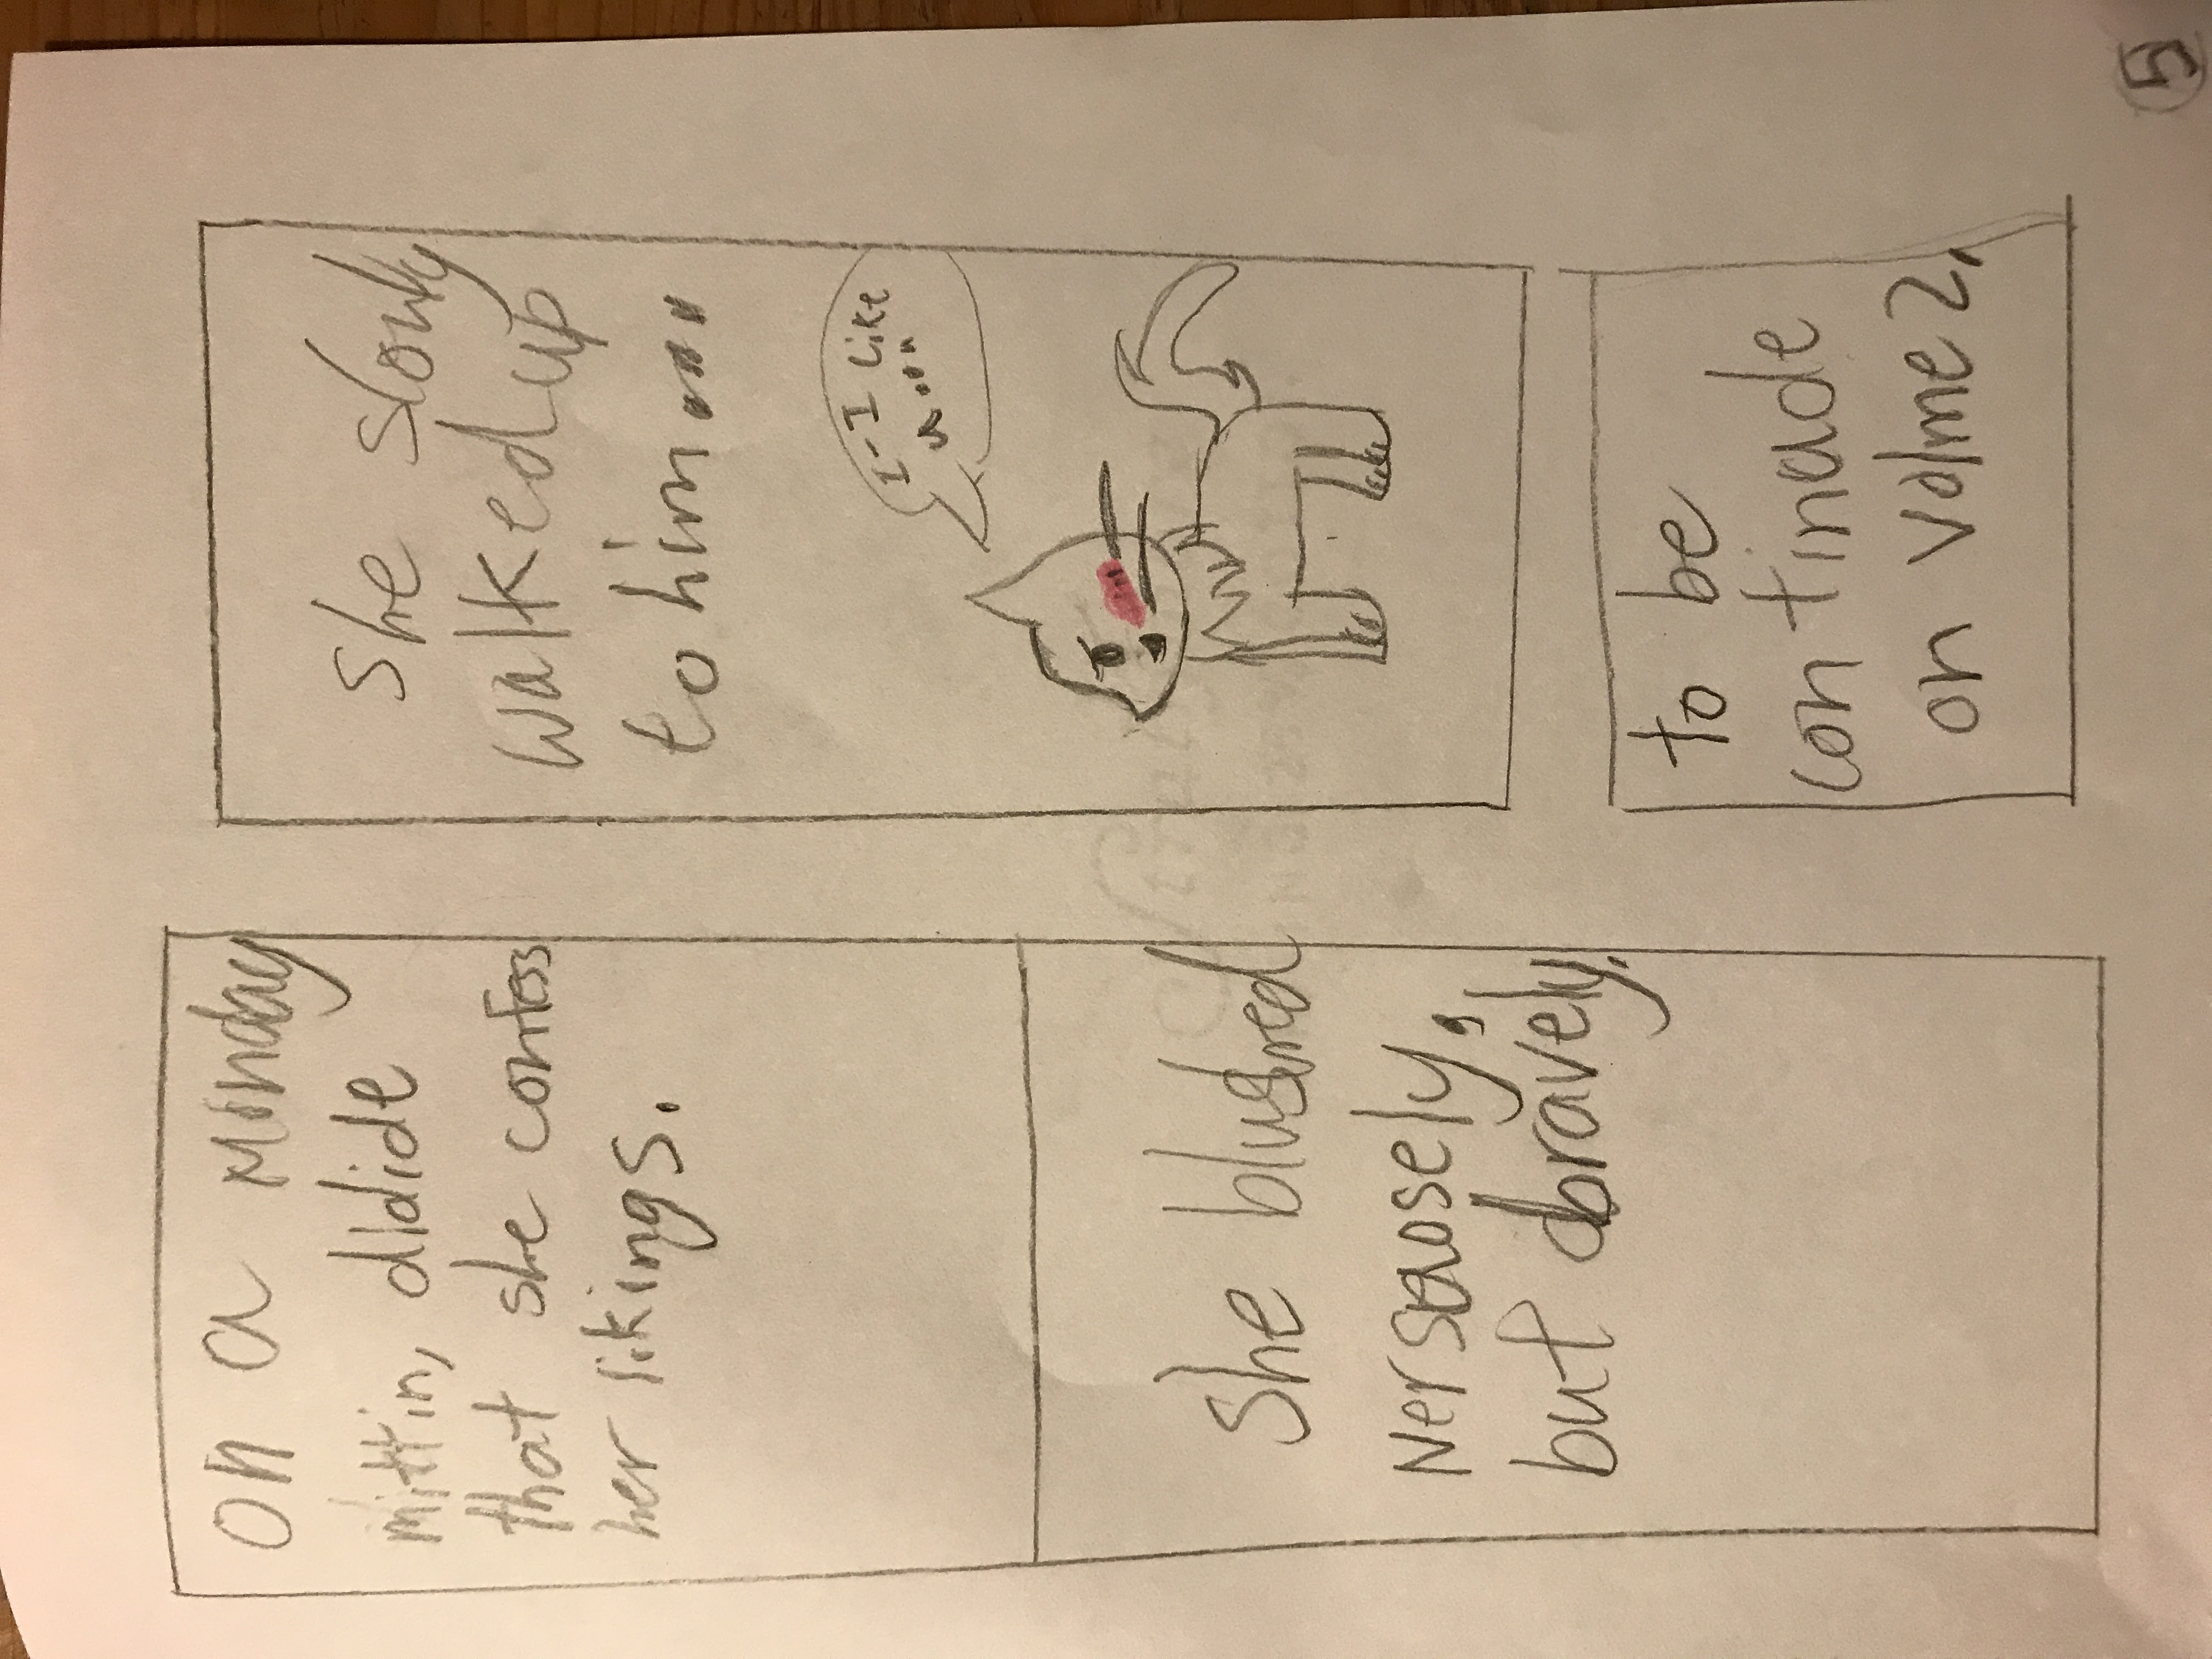 on a Monday
mittin, didide
that she confess
her likings.
She blushed
Nersuosely,
but bravely.
She slowly
walked up
to him....
I-I like
u....
to be
continude
on volme 2.
5